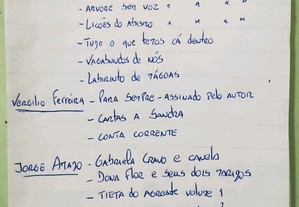 - ARVORE SEM VOZ " " "
- LIÇÕES DO ABISMO " " "
- TUDO O QUE TEMOS CÁ DENTRO
- VAGABUNDOS DE NÓS
- LABIRINTO DE MÁGOAS
VERGILIO FERREIRA - PARA SEMPRE - ASSINADO PELO AUTOR
- CARTAS A SANDRA
- CONTA CORRENTE
JORGE AMADO - GABRIELA CRAVO E CANELA
- DONA FLOR E SEUS DOIS MARIDOS
- TIETA DO AGRESTE VOLUME 1